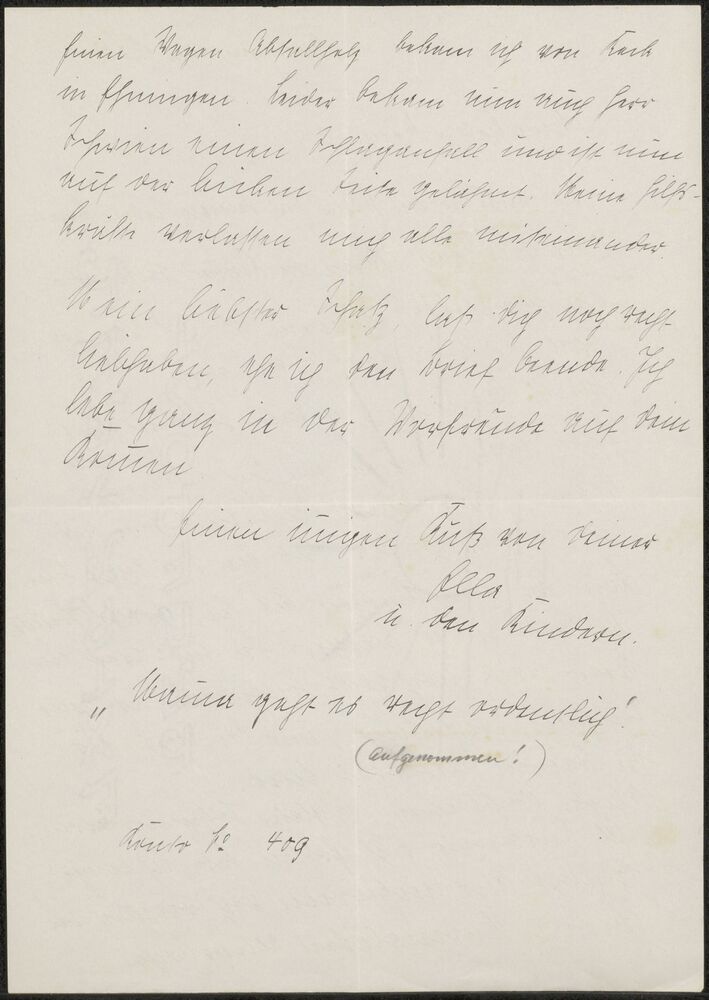 Einen Wagen Abfallholz bekam ich von Keck
in Ehningen. Leider bekam nun auch Herr
einen Schlaganfall und ist nun
auf der linken Seite gelähmt. Meine Hilfs-
kräfte verlassen mich alle miteinander.
Mein liebster Schatz, laß dich noch recht
liebhaben, ehe ich den Brief beende. Ich
lebe ganz in der Vorfreude auf dein
Kommen
Einen innigen Kuß von deiner
Ella
u. den Kindern.
„ Mama geht es recht ordentlich!
(Aufgenommen!)
Konto No 409